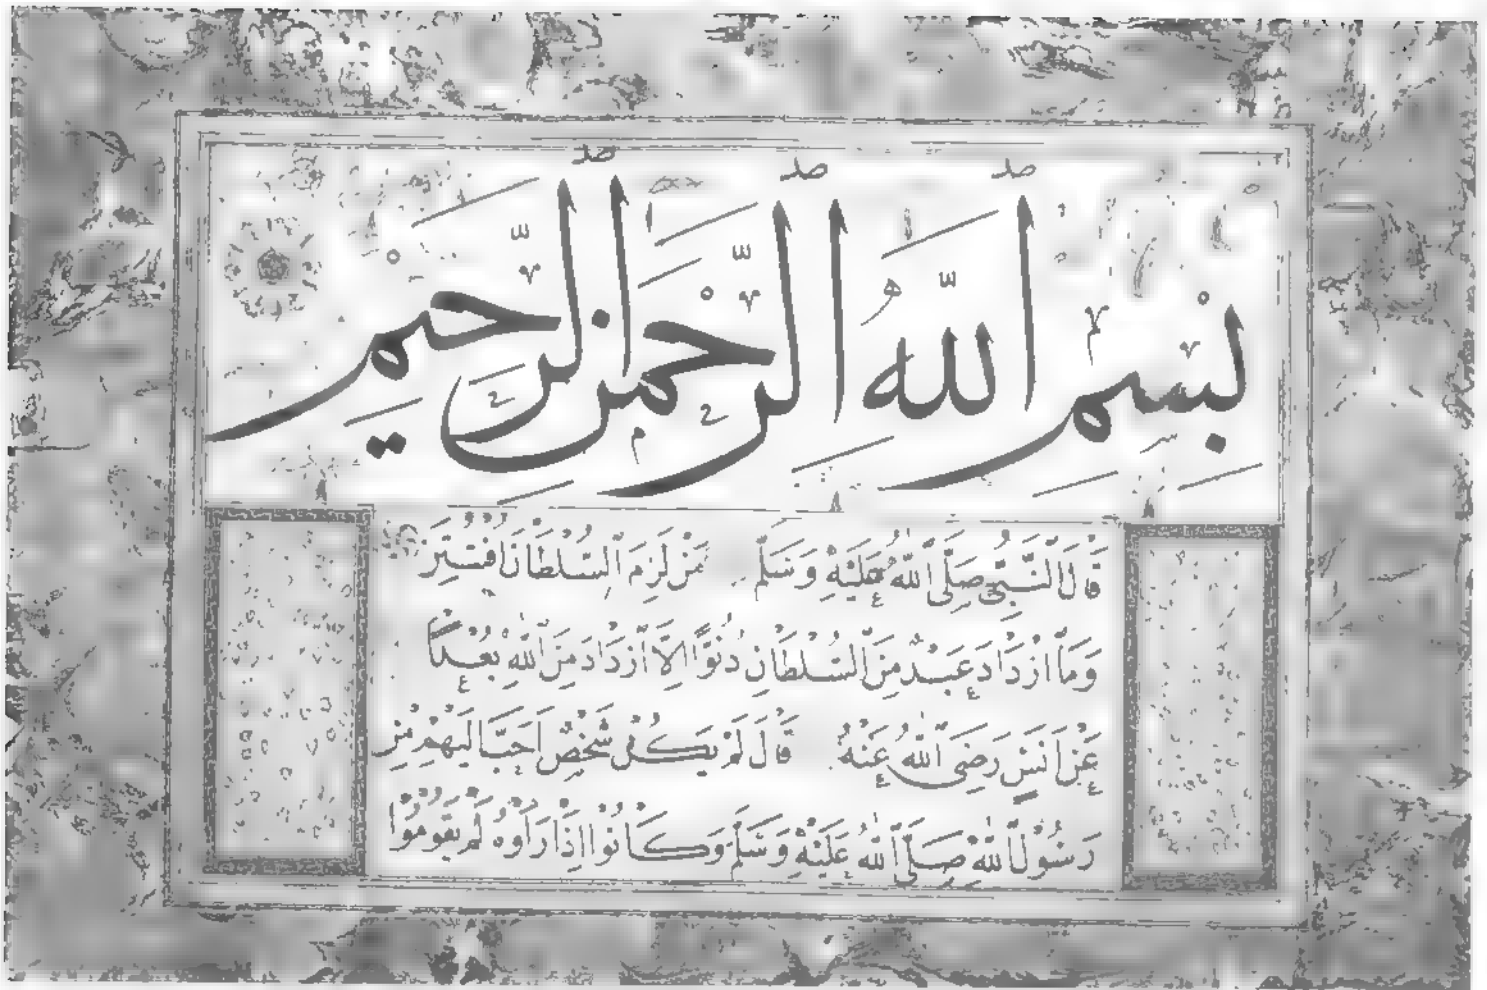 بِسْمِ اللّٰهِ الرَّحْمٰنِ الرَّحِيمِ
قَالَ النَّبِيُّ صَلَّى اللّٰهُ عَلَيْهِ وَسَلَّمَ مَنْ لَزِمَ السُّلْطَانَ افْتُتِنَ
وَمَا ازْدَادَ عَبْدٌ مِنَ السُّلْطَانِ دُنُوًّا اِلَّا ازْدَادَ مِنَ اللّٰهِ بُعْدًا
عَنْ اَنَسٍ رَضِيَ اللّٰهُ عَنْهُ قَالَ لَمْ يَكُنْ شَخْصٌ اَحَبَّ اِلَيْهِمْ مِنْ
رَسُولِ اللّٰهِ صَلَّى اللّٰهُ عَلَيْهِ وَسَلَّمَ وَكَانُوا اِذَا رَاَوْهُ لَمْ يَقُومُوا